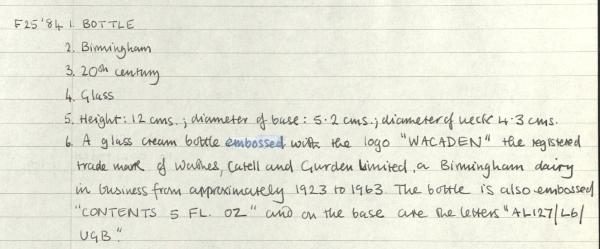 F25'84 1. BOTTLE
2. Birmingham
3. 20th century
4. Glass
5. Height: 12 cms.; diameter of base: 5.2 cms.; diameter of neck 4.3 cms.
6. A glass cream bottle embossed with the logo "WACADEN" the registered
trade mark of Wathes, Catell and Gurden Limited, a Birmingham dairy
in business from approximately 1923 to 1963. The bottle is also embossed
"CONTENTS 5 FL. OZ" and on the base are the letters "AL127/L6/
UGB."